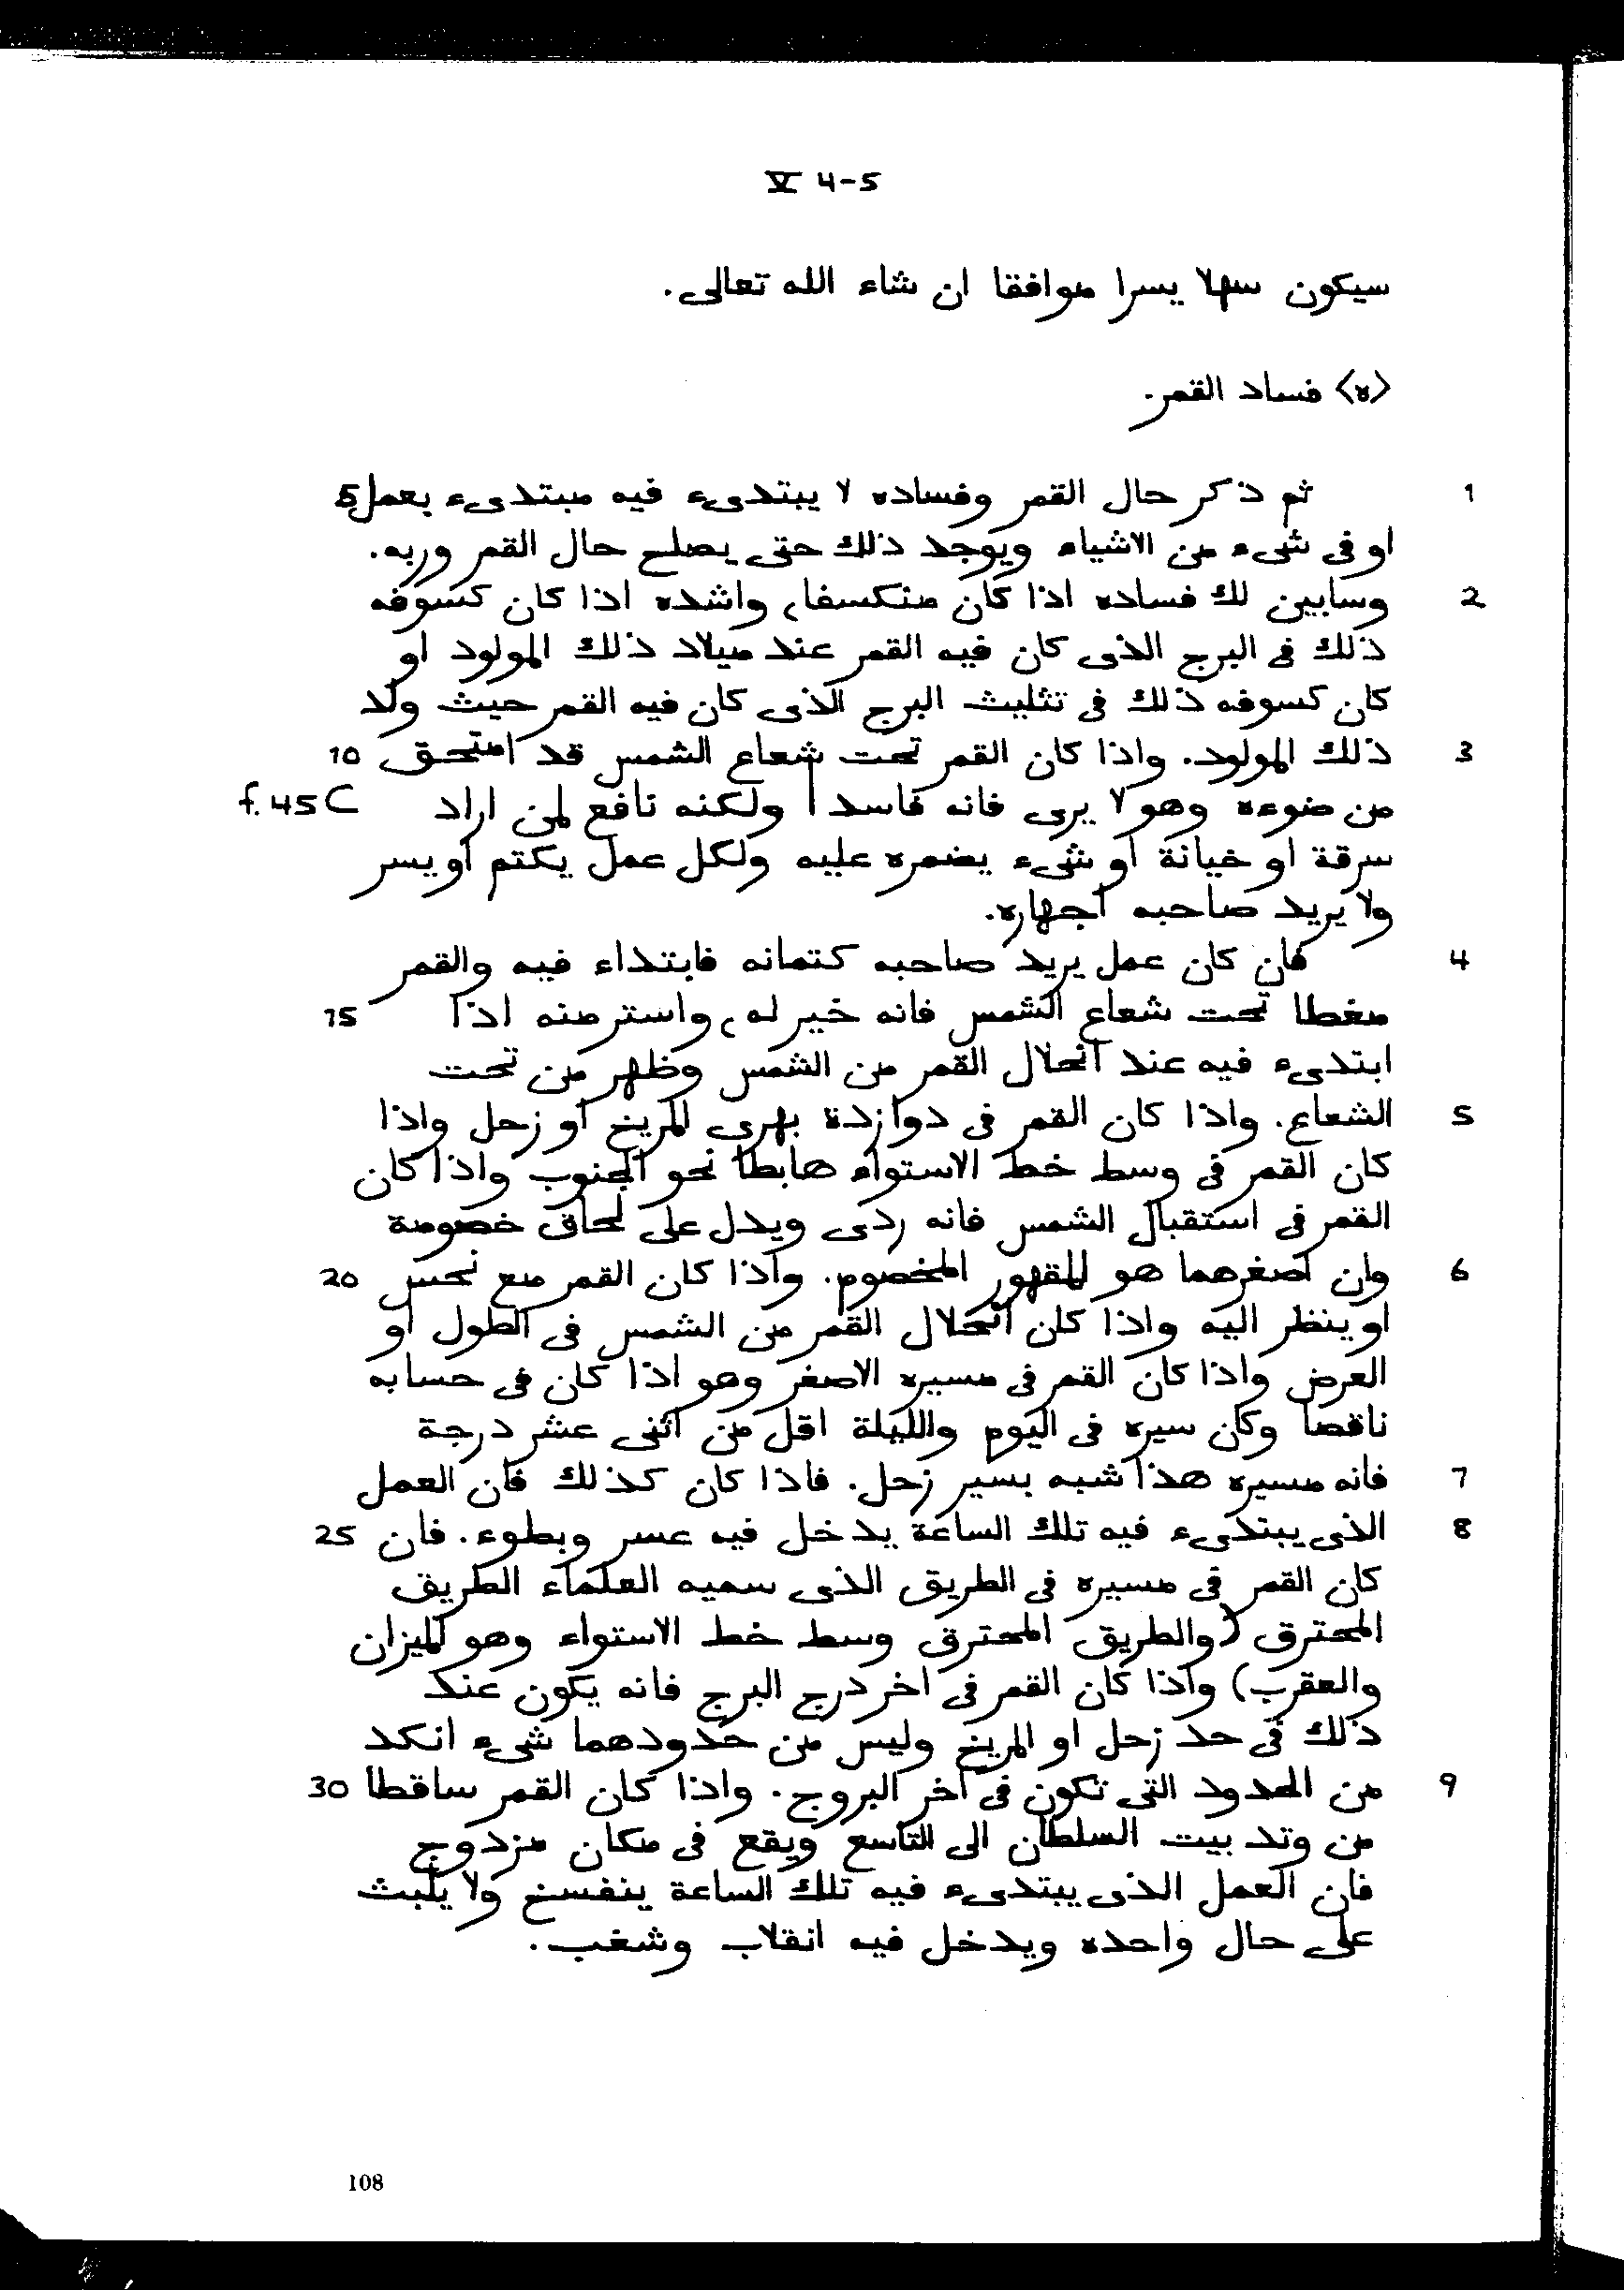 V 4-5
سيكون سهلا يسرا موافقا ان شاء الله تعالى.
<ه> فساد القمر.
1 ثم ذكر حال القمر وفساده لا يبتدىء فيه مبتدىء بعمل 5
او فى شىء من الاشياء ويوجد ذلك حتى يصلح حال القمر وربه.
2 وسابين لك فساده اذا كان منكسفا، واشده اذا كان كسوفه
ذلك فى البرج الذى كان فيه القمر عند ميلاد ذلك المولود او
كان كسوفه ذلك فى تثليث البرج الذى كان فيه القمر حيث ولد
3 ذلك المولود. واذا كان القمر تحت شعاع الشمس قد امتحق 10
من ضوءه وهو لا يرى فانه فاسد | ولكنه نافع لمن اراد f. 45C
سرقة او خيانة او شىء يضمره عليه ولكل عمل يكتم او يسر
ولا يريد صاحبه اجهاره.
4 فان كان عمل يريد صاحبه كتمانه فابتداء فيه والقمر
مغطا تحت شعاع الشمس فانه خير له، واستر منه اذا 15
ابتدىء فيه عند انحلال القمر من الشمس وظهر من تحت
5 الشعاع. واذا كان القمر فى دوازدة بهرى المريخ او زحل واذا
كان القمر فى وسط خط الاستواء هابطا نحو الجنوب واذا كان
القمر فى استقبال الشمس فانه ردى ويدل على لحاق خصومة
6 وان اصغرهما هو المقهور المخصوم. واذا كان القمر مع نحس 20
او ينظر اليه واذا كان انحلال القمر من الشمس فى الطول او
العرض واذا كان القمر فى مسيره الاصغر وهو اذا كان فى حسابه
ناقصا وكان سيره فى اليوم والليلة اقل من اثنى عشر درجة
7 فانه مسيره هذا شبه بسير زحل. فاذا كان كذلك فان العمل
8 الذى يبتدىء فيه تلك الساعة يدخل فيه عسر وبطوء. فان 25
كان القمر فى مسيره فى الطريق الذى سميه العلماء الطريق
المحترق (والطريق المحترق وسط خط الاستواء وهو الميزان
والعقرب) واذا كان القمر فى اخر درج البرج فانه يكون عند
ذلك فى حد زحل او المريخ وليس من حدودهما شىء انكد
9 من الحدود التى تكون فى اخر البروج. واذا كان القمر ساقطا 30
من وتد بيت السلطان الى التاسع ويقع فى مكان مزدوج
فان العمل الذى يبتدىء فيه تلك الساعة ينفسخ ولا يلبث
على حال واحده ويدخل فيه انقلاب وشغب.
108